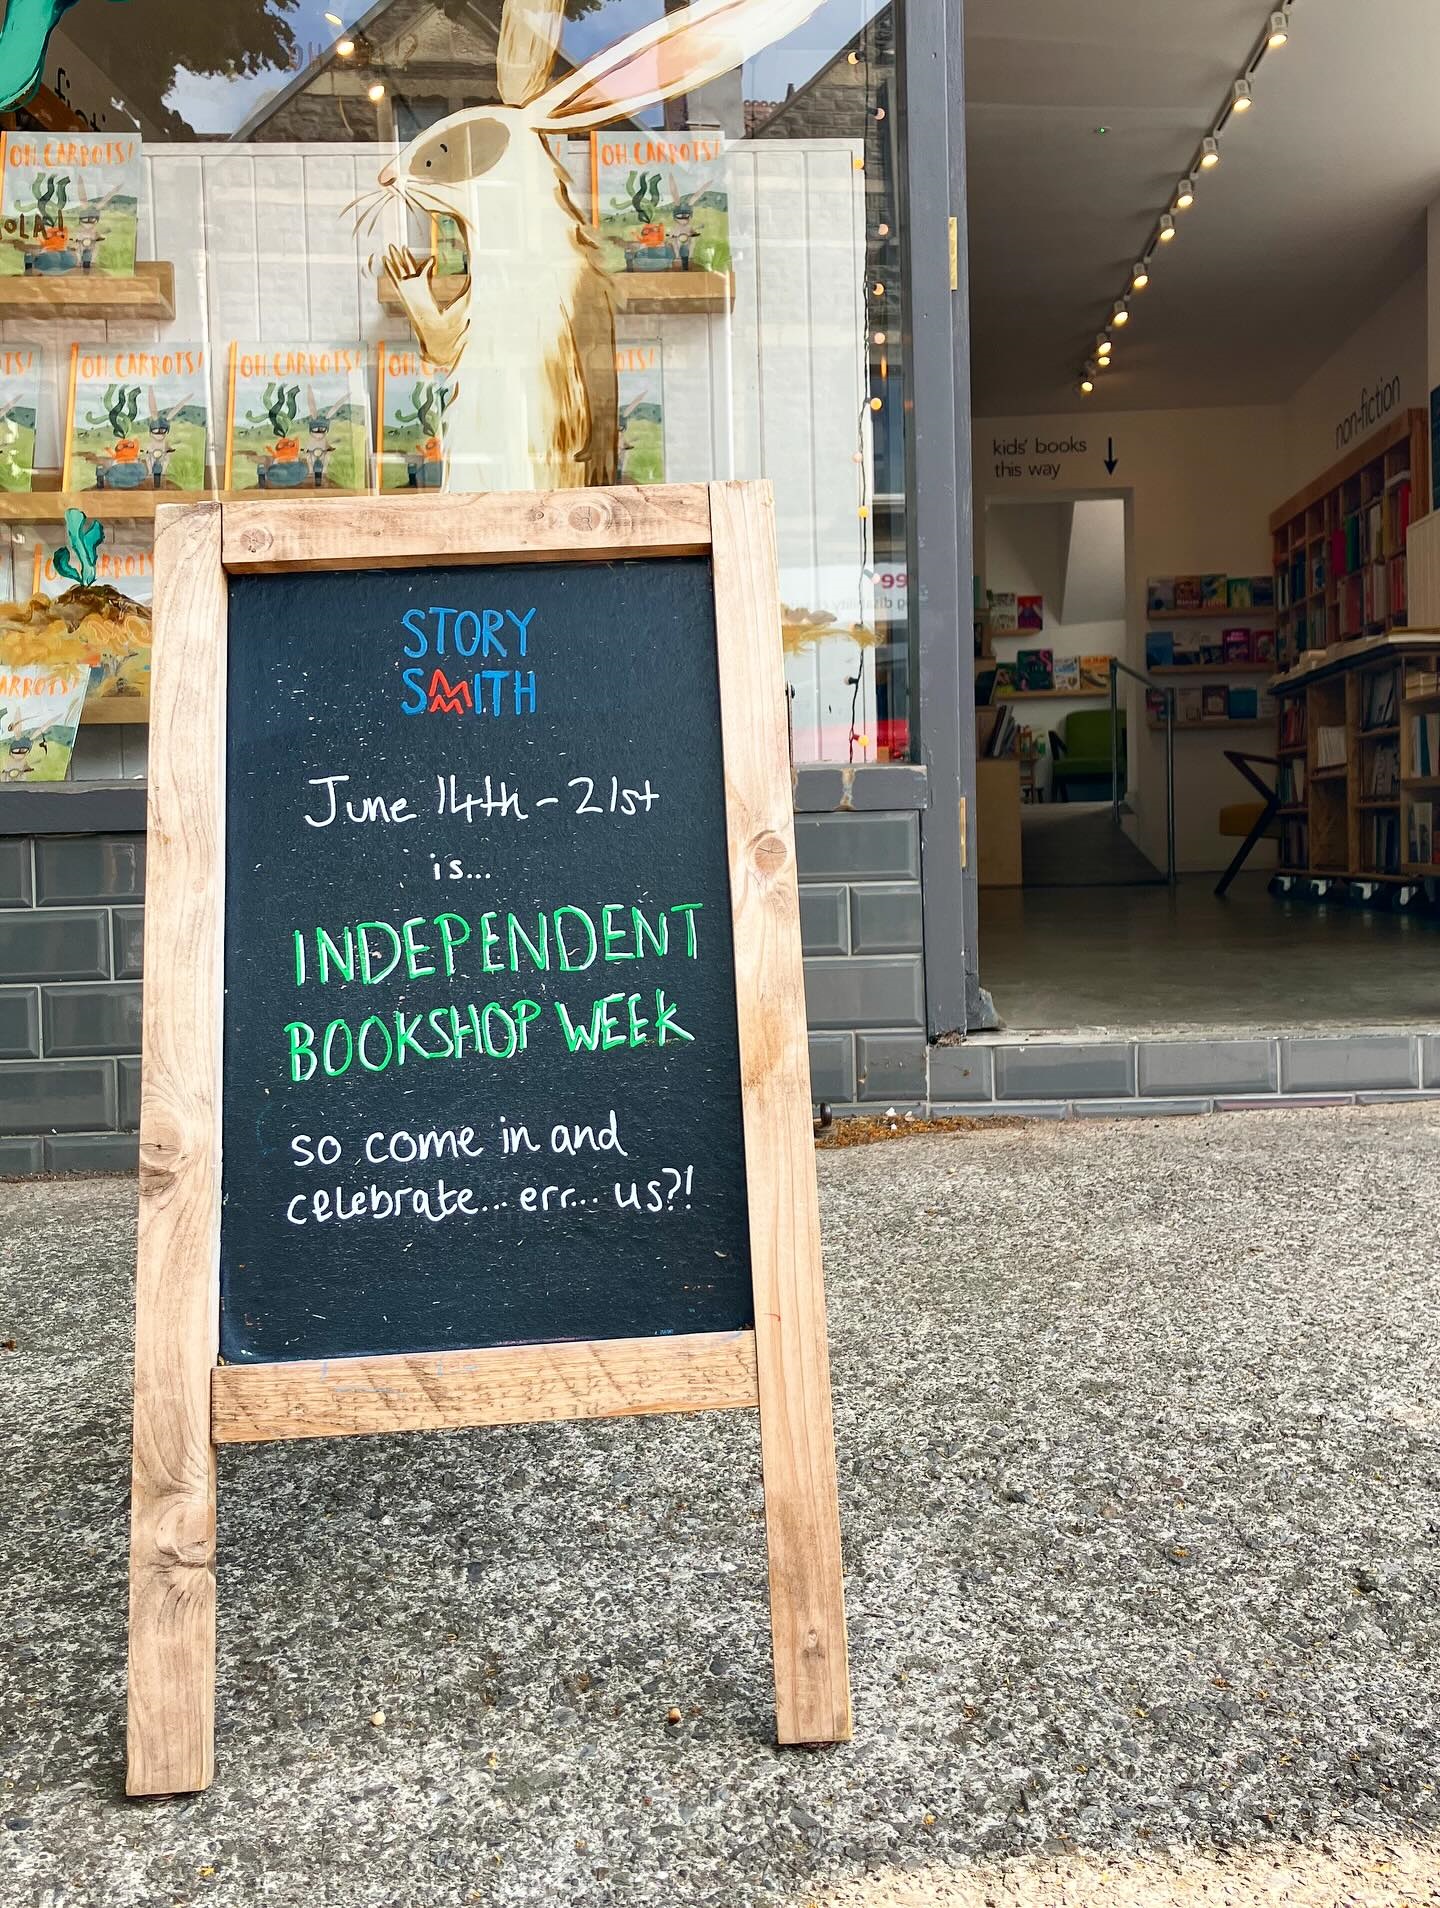 OH, CARROTS!
OH, CARROTS!
OLA!
OH, CARROTS!
OH, CARROTS!
kids' books
this way
non-fiction
STORY
SMITH
June 14th - 21st
is...
INDEPENDENT
BOOKSHOP WEEK
so come in and
celebrate... err... us?!